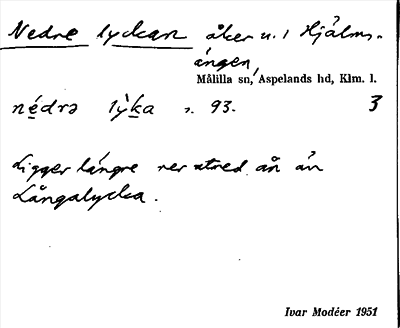 Nedre lyckan åker u. i Hjälms-
ängen,
Målilla sn, Aspelands hd, Klm. l.
nédrə lỳka r. 93. 3
Ligger längre ner utmed ån än
Långalycka.
Ivar Modéer 1951